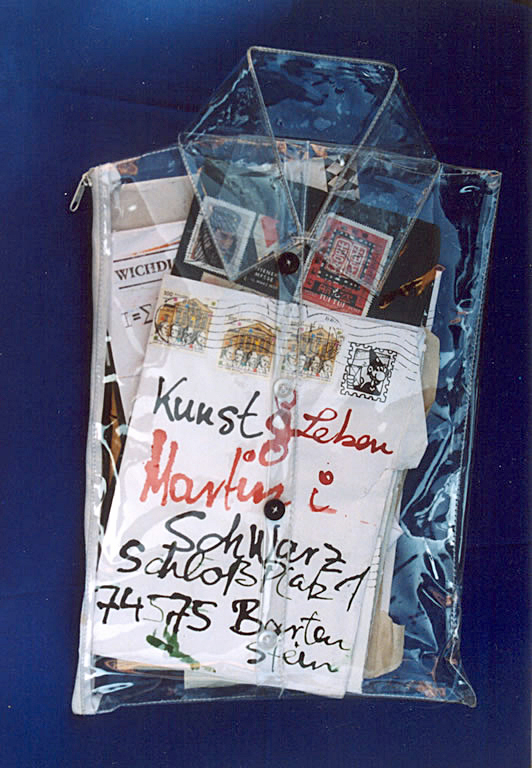 WICHD
I=Σ
Kunst & Leben
Martin i
Schwarz
Schloßplatz 1
74575 Barten
stein